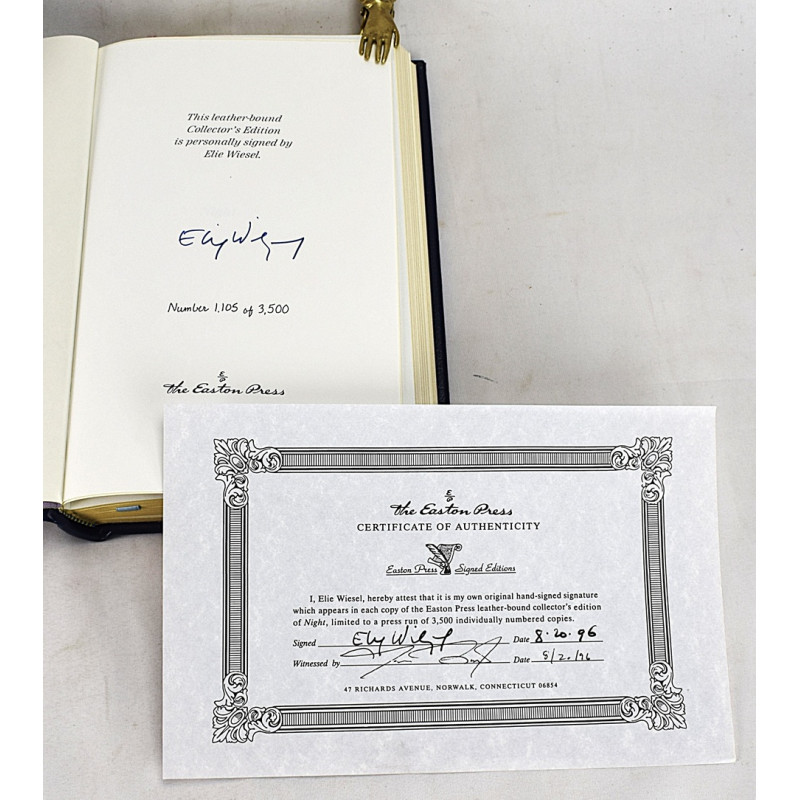 This leather-bound
Collector's Edition
is personally signed by
Elie Wiesel.
Elie Wiesel
Number 1,105 of 3,500
E/P
The Easton Press
E/P
The Easton Press
CERTIFICATE OF AUTHENTICITY
Easton Press Signed Editions
I, Elie Wiesel, hereby attest that it is my own original hand-signed signature
which appears in each copy of the Easton Press leather-bound collector's edition
of Night, limited to a press run of 3,500 individually numbered copies.
Signed Elie Wiesel Date 8·20·96
Witnessed by Date
47 RICHARDS AVENUE, NORWALK, CONNECTICUT 06854